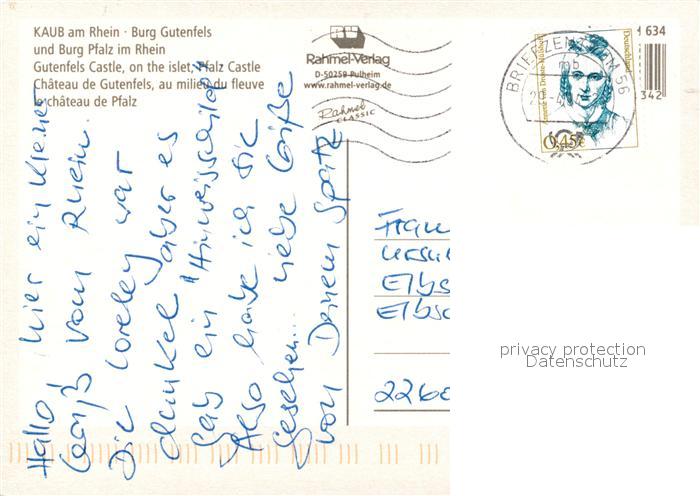 KAUB am Rhein · Burg Gutenfels
und Burg Pfalz im Rhein
Gutenfels Castle, on the islet, Pfalz Castle
Château de Gutenfels, au milieu du fleuve
le château de Pfalz
Rahmel-Verlag
D-50259 Pulheim
www.rahmel-verlag.de
Rahmel
CLASSIC
BRIEFZENTRUM 56
Deutschland
0,45€
1 634
342
Hallo! hier ein kleiner
Gruß vom Rhein.
Die Loreley war
dunkel, aber es
gab ein "Hinweisschild"
Also habe ich sie
gesehen... liebe Grüße
von Deinem Spatz
Frau
Ursu
Elbs
Elbsc
226
privacy protection
Datenschutz